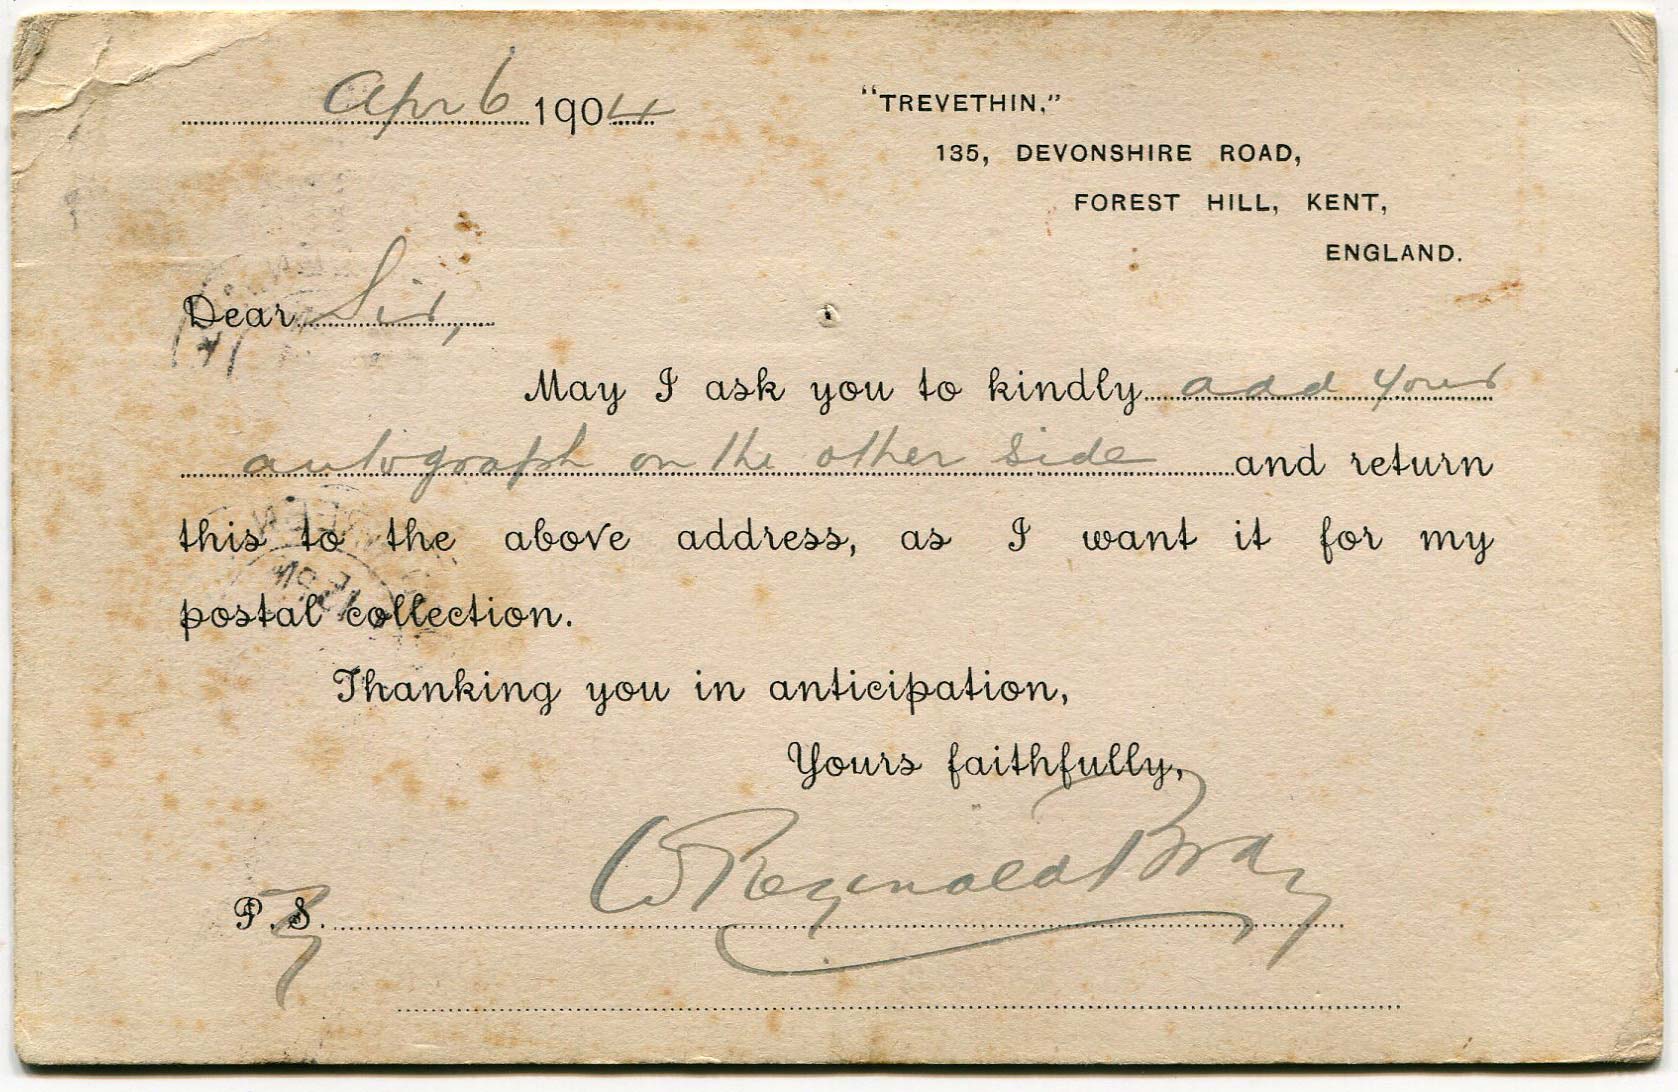 Apr 6 1904
"TREVETHIN,"
135, DEVONSHIRE ROAD,
FOREST HILL, KENT,
ENGLAND.
Dear Sir,
May I ask you to kindly add your
autograph on the other side and return
this to the above address, as I want it for my
postal collection.
Thanking you in anticipation,
Yours faithfully,
W Reginald Bray
P.S.